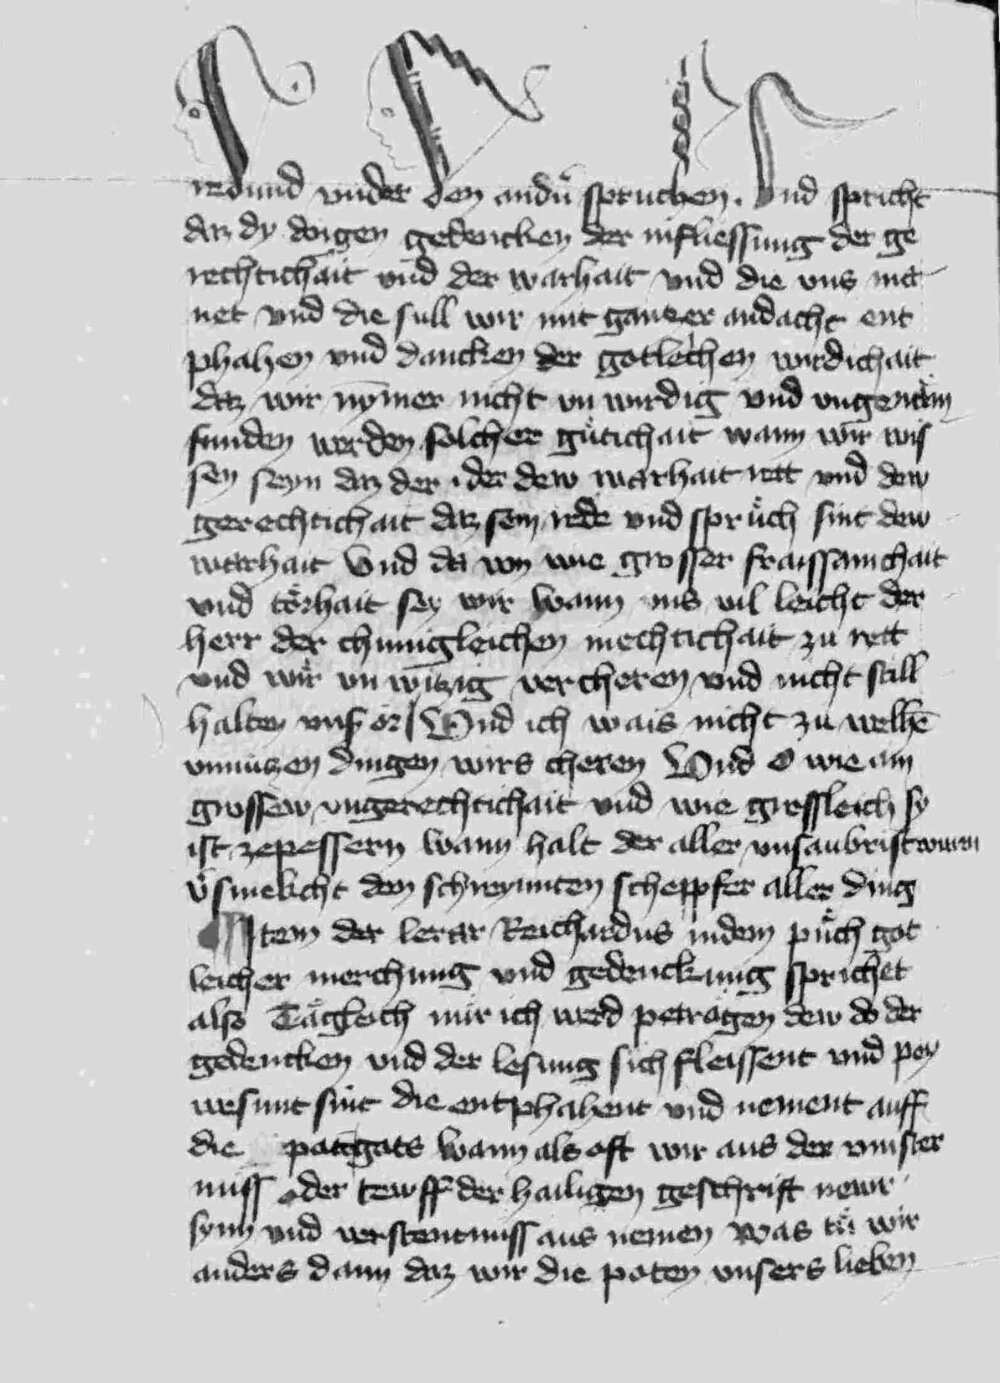 redund vnder den andn̄ spruchen. Vnd spricht
daz dy doigen gedencken der infliessung der ge
rechtichait vnd der warhait vnd die vns ma
net vnd die sull wir mit gantzer andacht ent
phahen vnd dancken der gotleichen wirdichait
daz wir nymer nicht vn wirdig vnd vngenäm
funden werden solcher gütichait wann wir wis
sen seyn daz der ider dew warhait rett vnd dew
gerechtichait daz sein rede vnd sprüch sint dew
warhait Vnd da von wie grosser fraissamchait
vnd törhait sey wir wann vns vil leicht der
herr der chunigleichen mechtichait zu rett
vnd wir vn witzig vercheren vnd nicht still
halten vnsˀ or Vnd ich wais nicht zu welhē
vnnützen dingen wirs cheren Vnd o wie ain
grossew vngerechtichait vnd wie grossleich sy
ist zepessern wann halt der aller vnsaubrist wurm
vˀsmekcht den schreyunten scheppfer aller ding
Item der lerar Reichardus in dem puch got
leicher merchung vnd gedenckung sprichet
also Tägleich mir ich werd petrogen dew do der
gedencken vnd der lesung sich fleissent vnd pey
wesunt sint die entphahent vnd nement auff
die potgots wann als oft wir aus der vinster
nuss oder tewff der hailigen geschrift newr
synn vnd verstentnuss aus nemen Was tü wir
anders dann daz wir die poten vnsers lieben